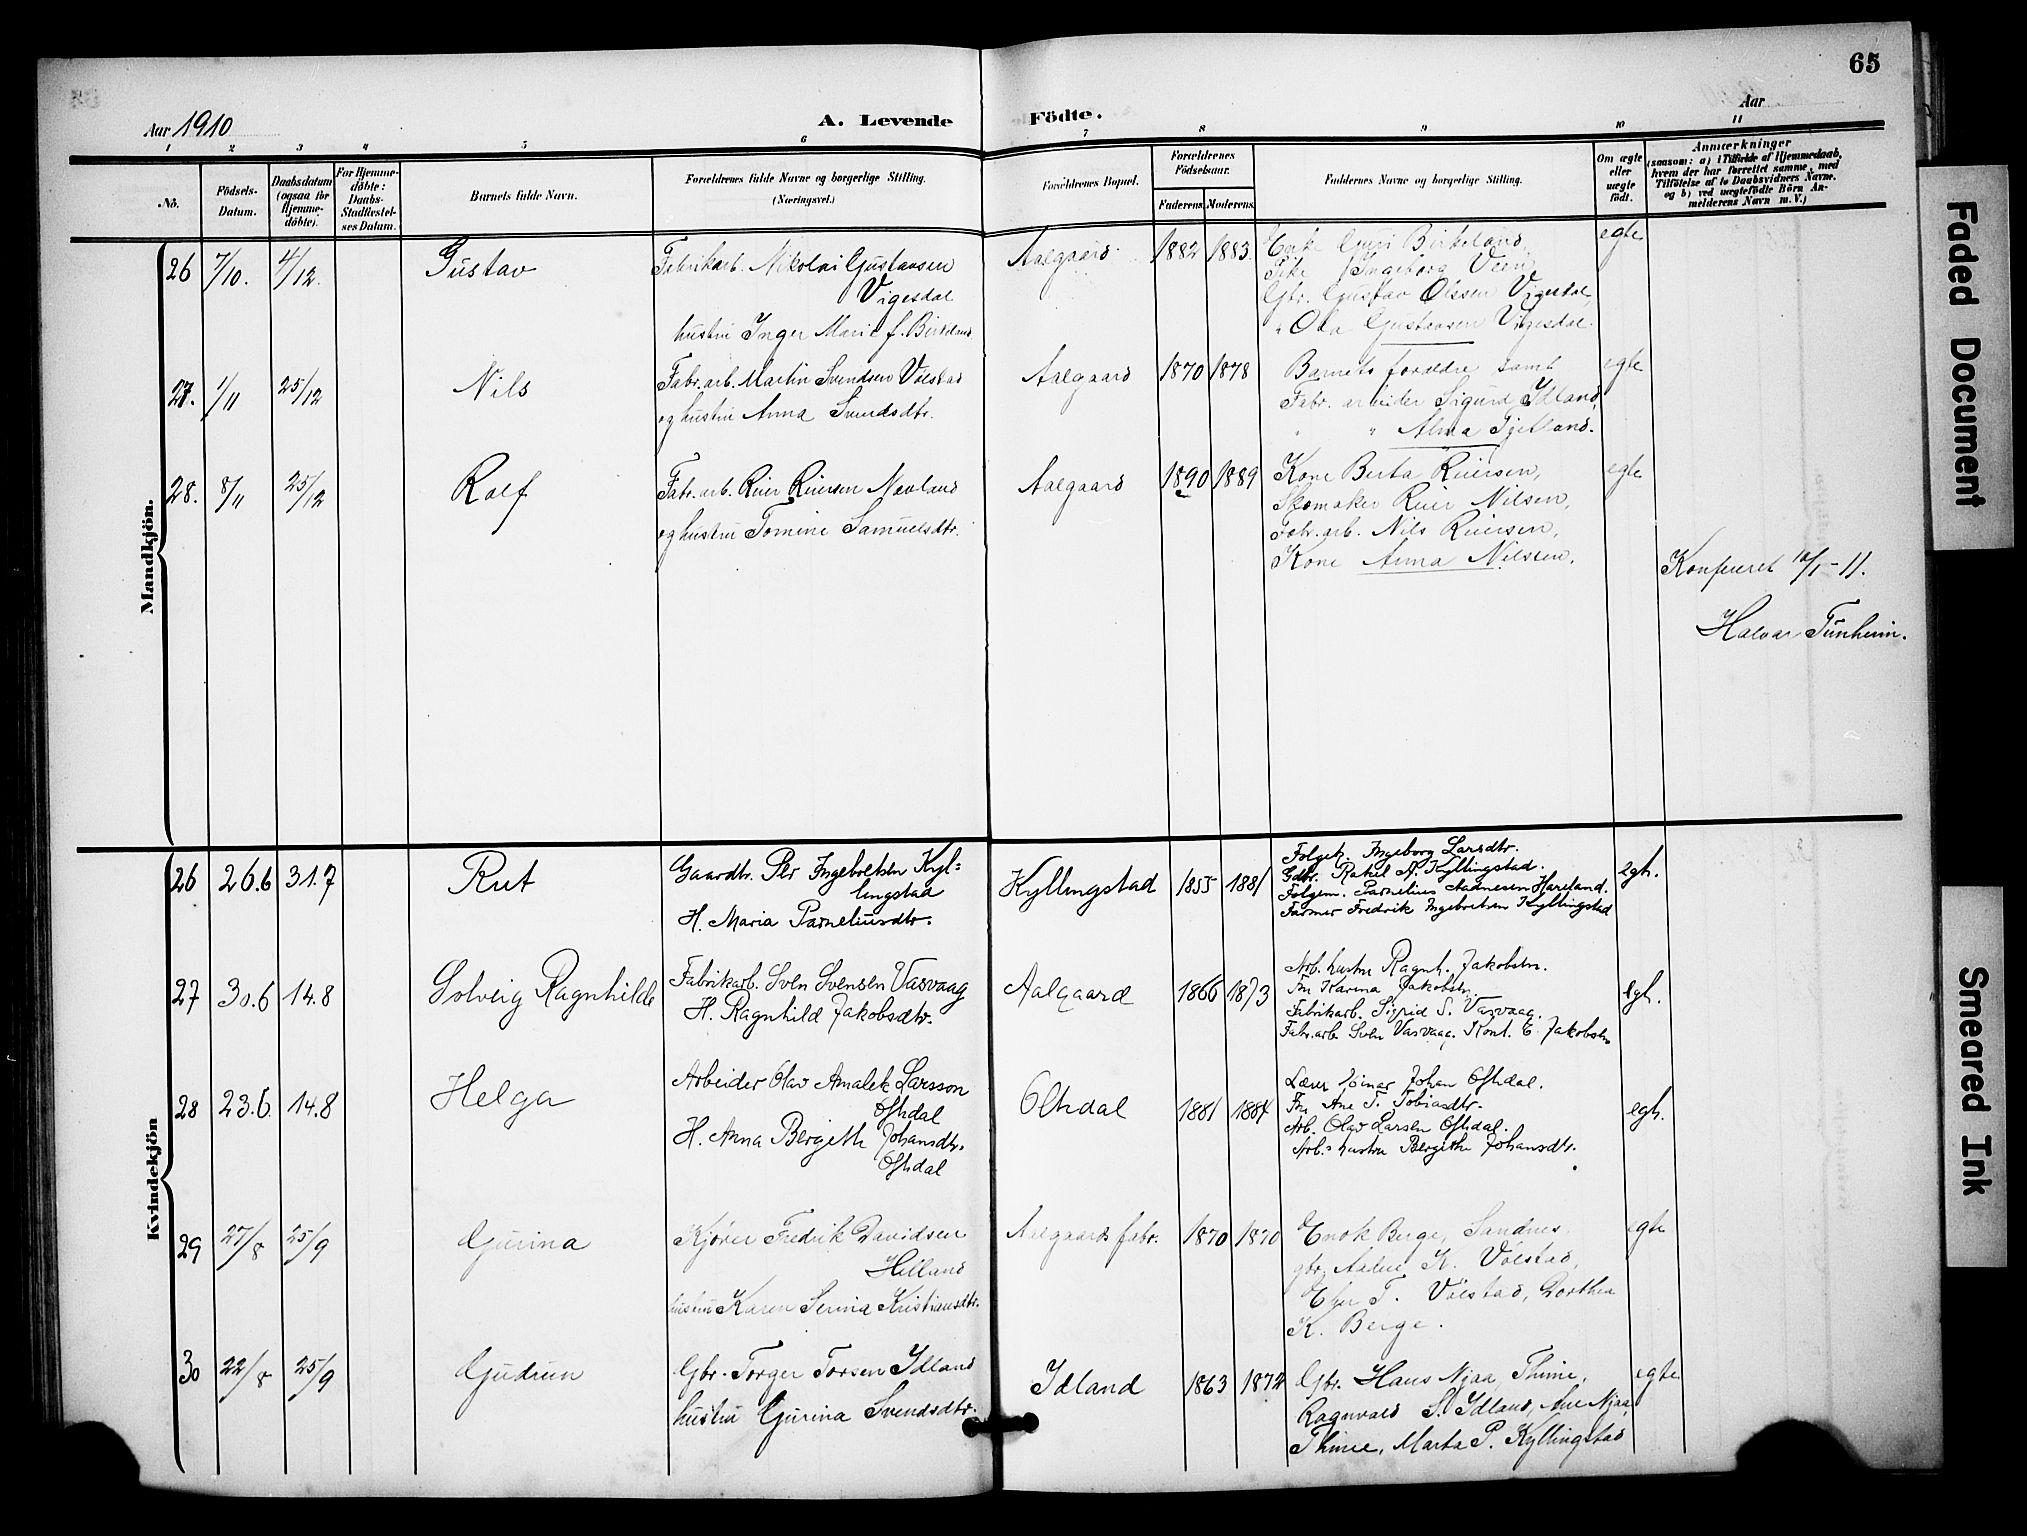 65
Aar 1910
A. Levende Födte.
Aar
1 2 3 4 5 6 7 8 9 10 11
No.
Födsels-Datum.
Daabsdatum (ogsaa for Hjemme-döbte).
For Hjemme-döbte: Daabs-Stadfæstel-ses Datum.
Barnets fulde Navn.
Forældrenes fulde Navne og borgerlige Stilling. (Næringsvei.)
Forældrenes Bopæl.
Forældrenes Födselsaar.
Faderens. Moderens.
Faddernes Navne og borgerlige Stilling.
Om ægte eller uægte födt.
Anmærkninger
(saasom: a) i Tilfælde af Hjemmedaab,
hvem der har forrettet samme, med
Tilföielse af to Daabsvidners Navne.
og b) ved uægtefödte Börn An-
melderens Navn m. V.)
Mandkjön.
26 7/10. 4/12. Gustav
Fabrikarb. Nikolai Gustavsen
Vigesdal
hustru Inger Marie f. Birkeland
Aalgaard 1882 1883.
Enke Guri Birkeland,
Pike Ingeborg Veen,
Gbr. Gustav Olssen Vigesdal,
" Ola Gustavsen Vigesdal.
egte
27. 1/11 25/12 Nils
Fabr. arb. Martin Svendsen Vølstad
og hustru Anna Svendsdtr.
Aalgaard 1870 1878
Barnets forældre samt
Fabr. arbeider Sigurd Ydland,
" " Alma Gjetland.
egte
28. 8/11 25/12 Rolf
Fabr. arb. Reier Reiersen Navland
og hustru Tomine Samuelsdtr.
Aalgaard 1890 1889
Kone Berta Reiersen,
Skomaker Reier Nilsen,
Fabr. arb. Nils Reiersen,
Kone Anna Nilssen.
egte
Konfereret 10/1-11.
Halvar Tunheim.
Kvindekjön
26 26.6 31.7 Rut
Gaardbr. Per Ingebretsen Kyl-
lingstad
H. Maria Parneliusdtr.
Kyllingstad 1855 1881
Folgek. Ingeborg Larsdtr.
Gdbr. Rakel A. Kyllingstad.
Folgem. Parnelius Aadnesen Haveland.
Farmer Fredrik Ingebretsen Kyllingstad
egt.
27 30.6 14.8 Solveig Ragnhilde
Fabrikarb. Sven Svensen Vasvaag
H. Ragnhild Jakobsdtr.
Aalgaard 1866 1873
Arb. hustru Ragnh. Jakobsen.
Frk Karina Jakobsen
Fabrikarb. Sigrid S. Vasvaag.
Fabr. arb. Sven Vasvaag. Kont. E. Jakobsen
egt.
28 23.6. 14.8 Helga
Arbeider Olav Amalek Larsson
Oftedal
H. Anna Bergeth Johansdtr.
Oftedal
Oltedal 1881 1884
Lærer Johan Oftedal.
Ane T. Tobiasdtr.
Arb. Olav Larsen Oftedal.
Arb.s hustru Bergithe Johansdtr.
egt.
29 27/8 25/9 Gurina
Kjører Fredrik Davidsen
Helland
hustru Karen Serina Kristiansdtr.
Aalgaards fabr. 1870 1870
Enok Berge, Sandnes
gbr. Aadne K. Vølstad,
T. Vølstad, Dorthea
K. Berge.
egte
30 22/8 25/9 Gudrun
Gbr. Torger Torsen Ydland
hustru Gurina Svendsdtr.
Idland 1863 1872
Gbr. Hans Njaa, Thime,
Ragnvald S. Ydland, Ane Njaa,
Thime, Marta P. Kyllingstad
egte
Faded Document
Smeared Ink